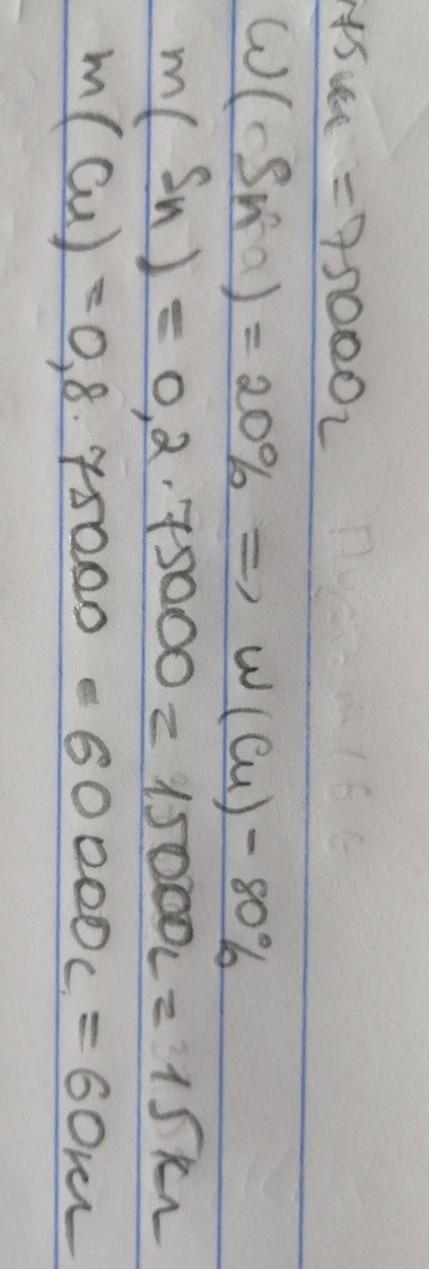 75 кг = 75000г
W(Sn) = 20% => W(Cu) - 80%
m(Sn) = 0,2 · 75000 = 15000г = 15кг
m(Cu) = 0,8 · 75000 = 60000г = 60кг